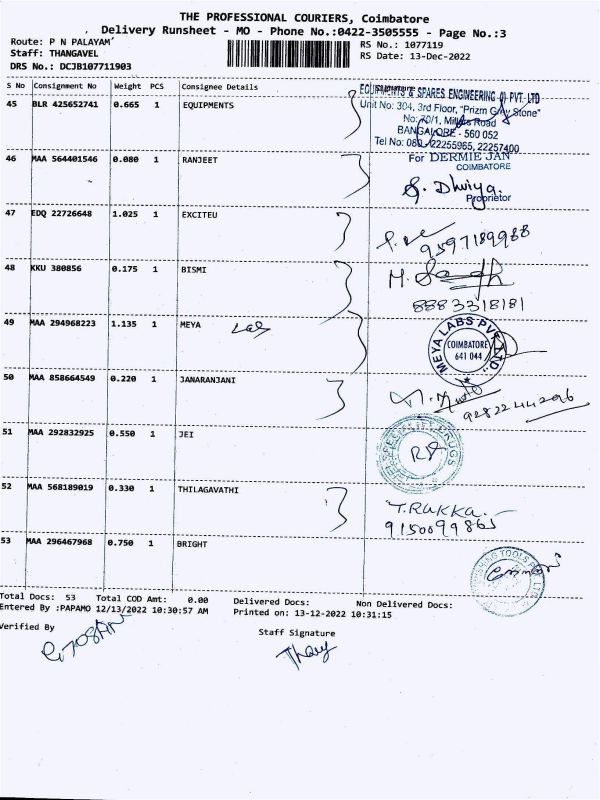 THE PROFESSIONAL COURIERS, Coimbatore
Delivery Runsheet - MO - Phone No.:0422-3505555 - Page No.:3
Route: P N PALAYAM
Staff: THANGAVEL
DRS No.: DCJB107711903
RS No.: 1077119
RS Date: 13-Dec-2022
S No Consignment No Weight PCS Consignee Details Signature
45 BLR 425652741 0.665 1 EQUIPMENTS
EQUIPMENTS & SPARES ENGINEERING (I) PVT. LTD
Unit No: 304, 3rd Floor, "Prizm Grey Stone"
No: 70/1, Millers Road
BANGALORE - 560 052
Tel No: 080-22255965, 22257400
46 MAA 564401546 0.080 1 RANJEET
For DERMIE JAN
COIMBATORE
Proprietor
47 EDQ 22726648 1.025 1 EXCITEU
9597189988
48 KKU 380856 0.175 1 BISMI
8883318181
49 MAA 294968223 1.135 1 MEYA Lab
MEYA LABS PVT. LTD.
COIMBATORE
641 044
50 MAA 858664549 0.220 1 JANARANJANI
9282244296
51 MAA 292832925 0.550 1 JEI
SPECIALITY DRUGS
52 MAA 568189019 0.330 1 THILAGAVATHI
T. RUKKA.
9150099865
53 MAA 296467968 0.750 1 BRIGHT
Total Docs: 53 Total COD Amt: 0.00 Delivered Docs: Non Delivered Docs:
Entered By :PAPAMO 12/13/2022 10:30:57 AM Printed on: 13-12-2022 10:31:15
Verified By
Staff Signature